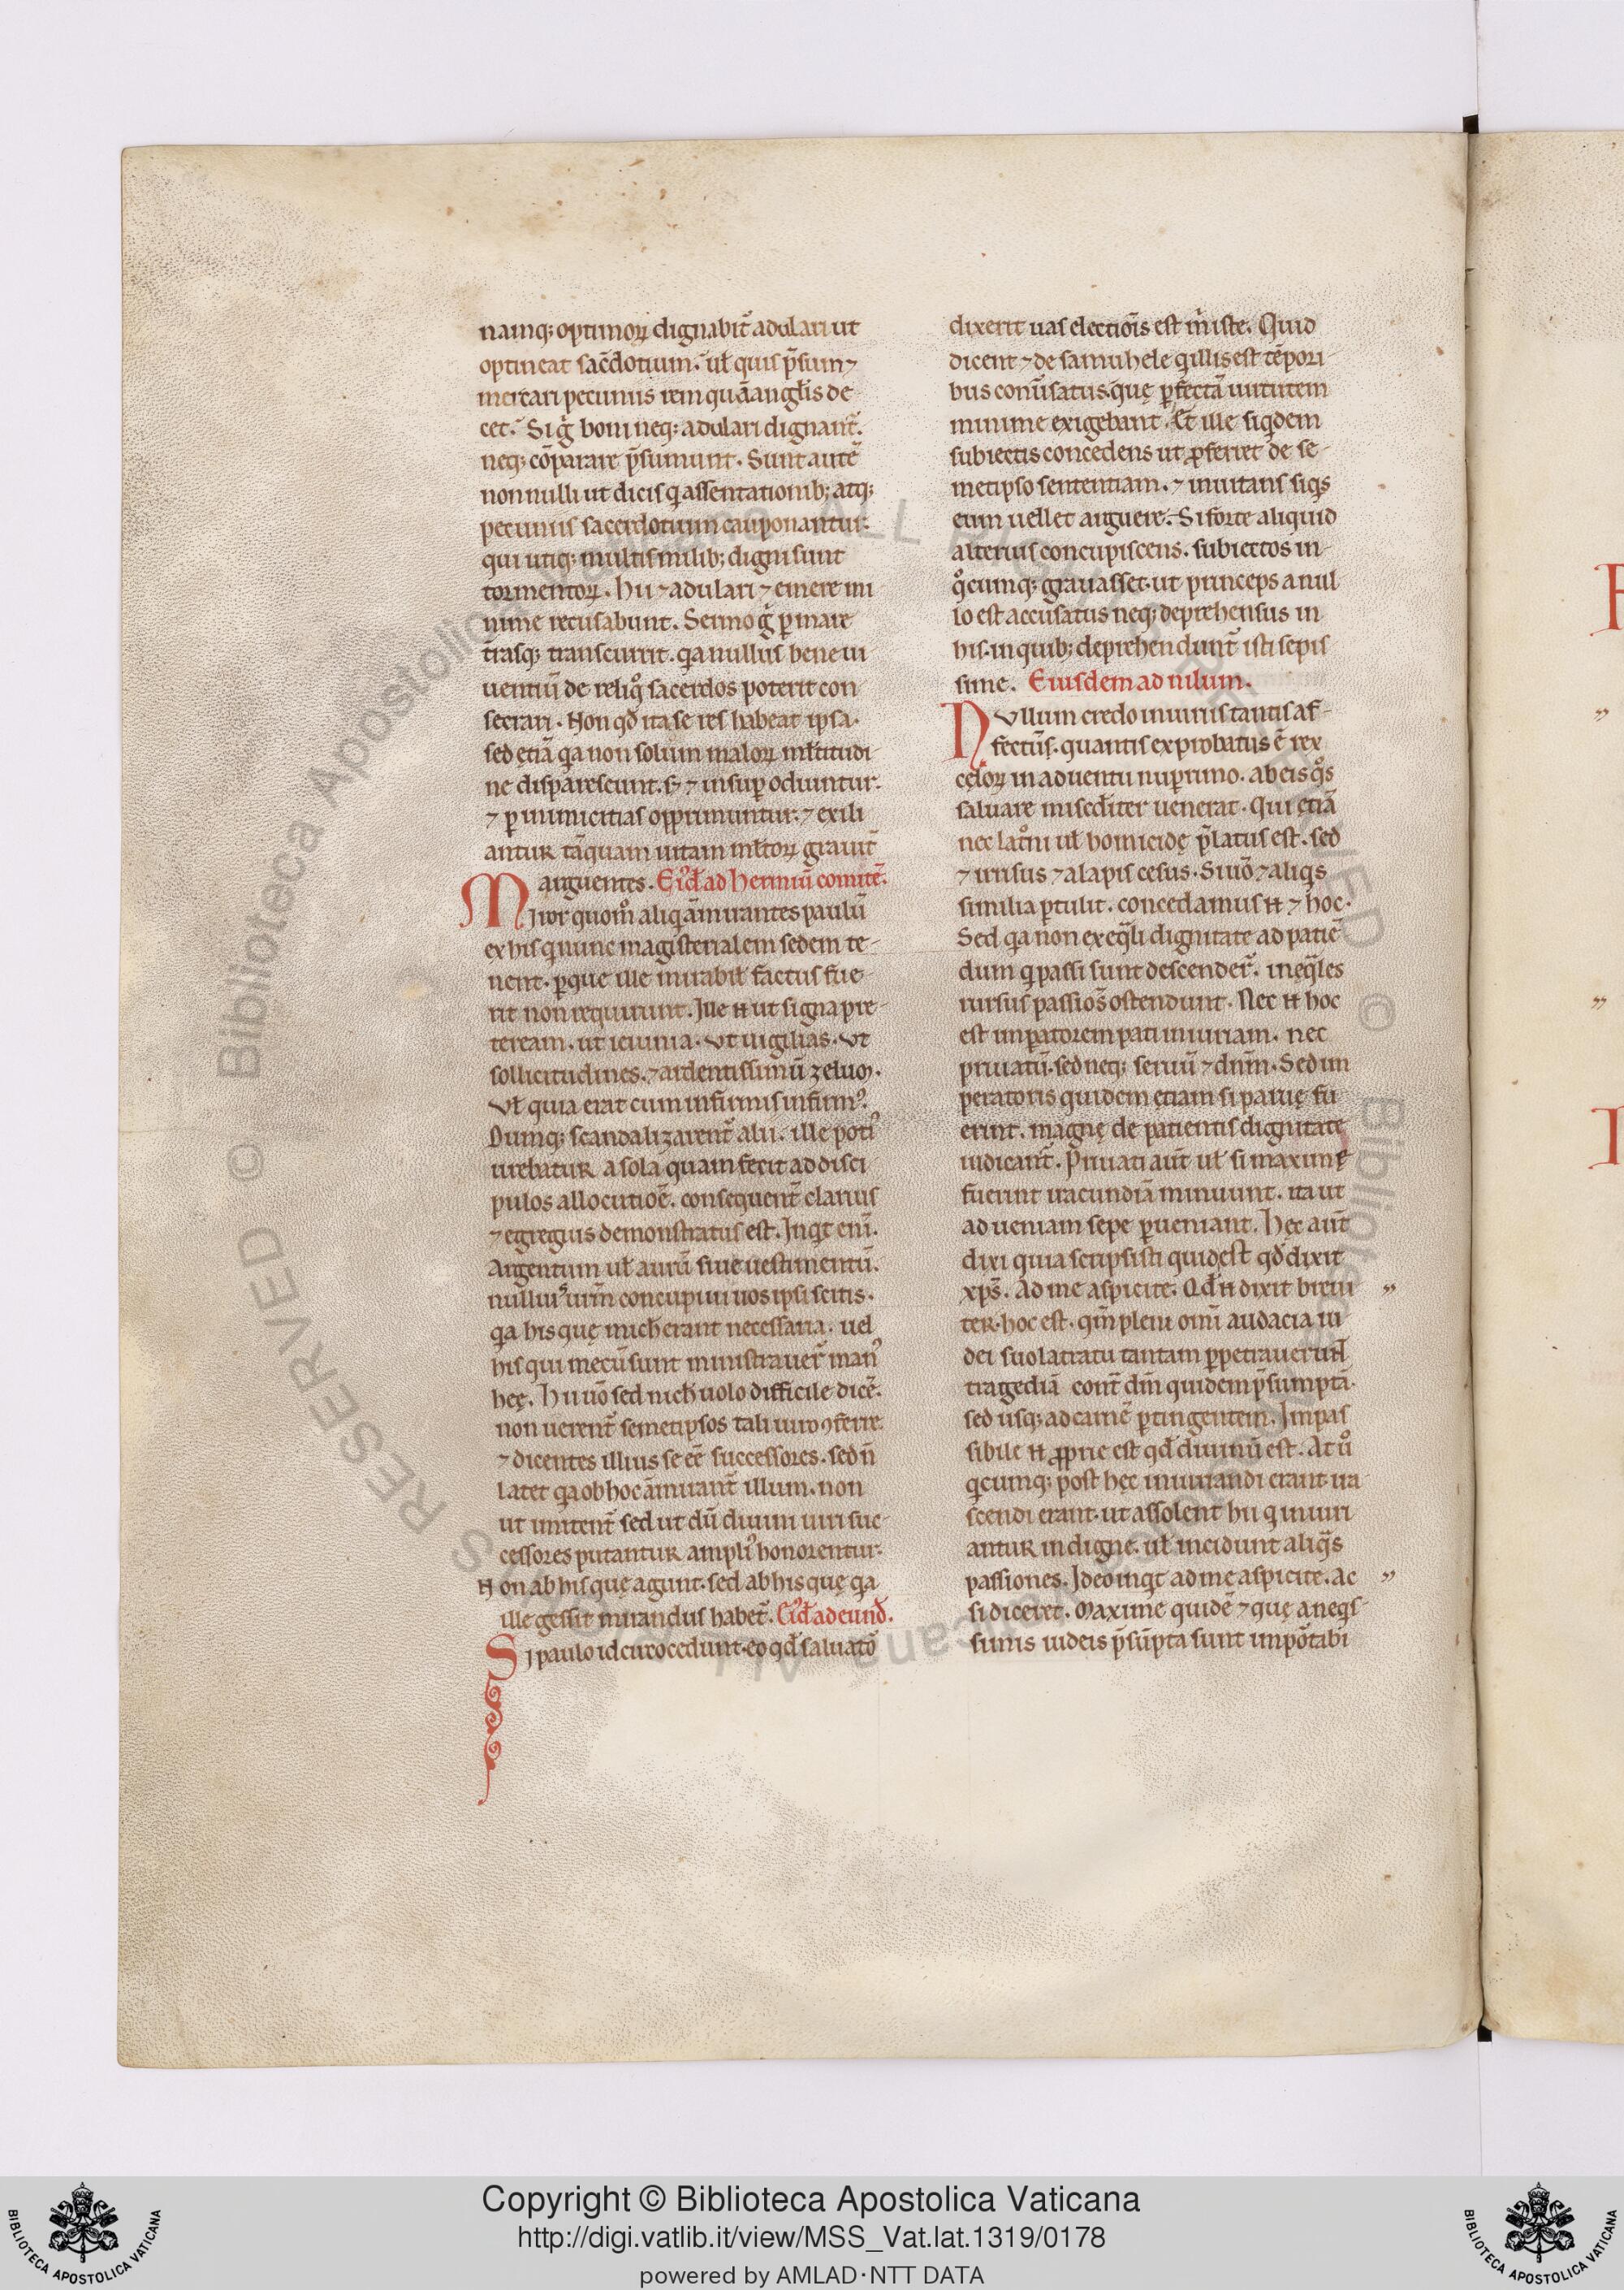 namq; optimoꝝ dignabit᷑ adulari ut
optineat sac̄dotium. ul̄ quis p̄sum⁊
mercari pecuniis rem quā anglīs de-
cet. Si ḡ boni neq; adulari dignant᷑.
neq; cōparare p̄sumunt. Sunt autē
non nulli ut dicis q assentationib; atq;
pecuniis sacerdotium cauponantur.
qui utiq; multis milib; digni sunt
tormentoꝝ. hii ⁊ adulari ⁊ emere mi
nime recusabunt. Sermo ḡ ꝑ mare
t̄rasq; transcurrit. qa nullus bene ui
uentiū de reliqͦ sacerdos poterit con
secrari. Non qd̄ ita se res habeat ipsa.
sed ętiā qa non solum maloꝝ ml̄titudi
ne disparescunt. s; ⁊ insuꝑ odiuntur.
⁊ ꝑ inimicitias opprimuntur. ⁊ exili
antur tāquam uitam ml̄toꝝ grauit᷑
arguentes. Ei᷒d̄ ad herminū comitē.
Miror quom̊ aliq āmirantes paulū
ex his q nunc magisterialem sedem te-
nent. ꝑ que ille mirabil̄ factus fue-
rit non requirunt. Ille n̄ ut signa pre-
teream. ut ieiunia. ut uigilias. ut
sollicitudines. ⁊ ardentissimū zelum.
ul̄ quia erat cum infirmis infirm᷒.
Dumq; scandalizarent᷑ alii. ille poti᷒
urebatur a sola quam fecit ad disci
pulos allocutiōe. consequent᷑ clarius
⁊ egregius demonstratus est. Inqt eni᷑.
Argentum ul̄ aurū siue uestimentū.
nulli᷒ urm̄ concupiui uos ipsi scitis.
qa his quę mich erant necessaria. uel
his qui mecū sunt ministrauer᷑ man᷒
hęę. hii uō sed nich uolo difficile dic̄e.
non uerent᷑ semetipsos tali uiro ꝯferre.
⁊ dicentes illius se eē successores. sed n̄
latet qa ob hoc āmirant᷑ illum. non
ut imitent᷑ sed ut dū diuini uiri suc-
cessores putantur ampli᷒ honorentur.
Non ab his quę agunt. sed ab his quę qa
ille gessit mirandus habet᷑. Ei᷒d̄ ad eund̄.
Si paulo idcirco cedunt. eo qd̄ saluatō
dixerit uas electiōis est m̄ iste. Quid
dicent ⁊ de samuhele q illis est tēpori-
bus conūsatus. quę ꝑfectā uirtutem
minime exigebant. Et ille siqdem
subiectis concedens ut ꝓferret de se-
metipso sententiam. ⁊ inuitans siqs
eum uellet arguere. Si forte aliquid
alterius concupiscens. subiectos in-
qͦcumq; grauasset. ut princeps a nul
lo est accusatus neq; deprehensus in
his. in quib; deprehendunt᷑ isti sepis
sime. Eiusdem ad nilum.
Nullum credo iniuriis tantis af-
fectūs. quantis exprobatus ē rex
cęloꝝ in aduentu nu primo. ab eis qͦs
saluare misedīter uenerat. Qui ętiā
nec latͦni ul̄ homicidę p̄latus est. sed
⁊ irrisus ⁊ alapis cesus. Si uō ⁊ aliqs
similia ꝑtulit. concedamus n̄ ⁊ hoc.
Sed qa non ex eqli dignitate ad patiē
dum q passi sunt descender᷑. ineqles
rursus passiōs ostendunt. Nec n̄ hoc
est imꝑatorem pati iniuriam. nec
priuatū. sed neq; seruū ⁊ dnm̄. Sed im
peratoris quidem ętiam si paruę fu
erint. magnę de patientis dignitate
iudicant᷑. Priuati aūt ul̄ si maximę
fuerint iracundiā minuunt. ita ut
ad ueniam sepe ꝑueniant. hęc aūt
dixi quia scripsisti quid est qd̄ dixit
xp̄s. Ad me aspicite. Qd̄ n̄ dixit breui
ter. hoc est. qm̄ pleni omī audacia iu
dei suo latratu tantam ꝑpetrauerunt
tragediā cont᷑ dm̄ quidem p̄sumptā.
sed usq; ad carnē ꝑtingentem. Impas
sibile n̄ ꝓprie est qd̄ diuinū est. At uͦ
qcumq; post hęc iniuriandi erant ira
scendi erant. ut assolent hii q iniuri
antur indigne. ul̄ incidunt aliqs
passiones. Ideo inqt ad me aspicite. Ac
si diceret. Maxime quidē ⁊ quę a neqs-
simis iudeis p̄sūpta sunt impōtabi
Copyright © Biblioteca Apostolica Vaticana
http://digi.vatlib.it/view/MSS_Vat.lat.1319/0178
powered by AMLAD·NTT DATA